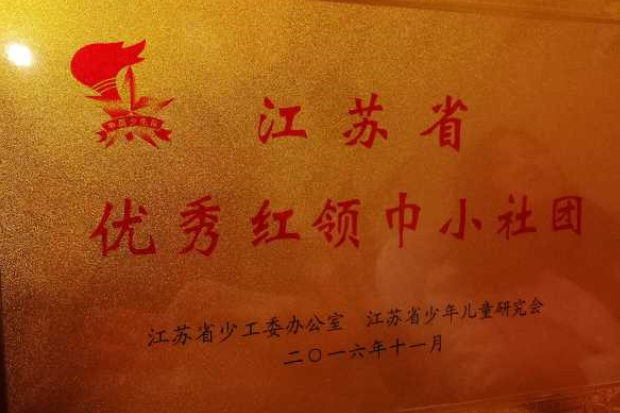 中国少先队
江苏省
优秀红领巾小社团
江苏省少工委办公室 江苏省少年儿童研究会
二〇一六年十一月